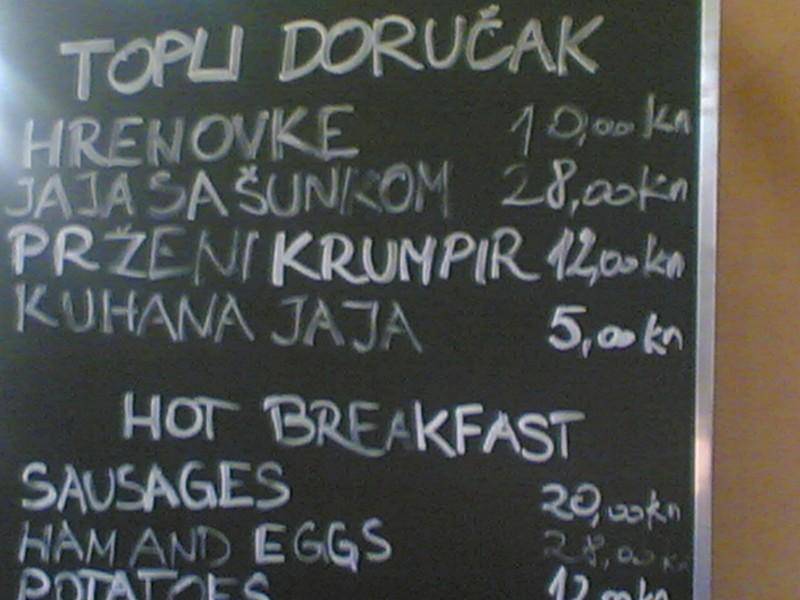 TOPLI DORUČAK
HRENOVKE 10,00 kn
JAJA SA ŠUNKOM 28,00 kn
PRŽENI KRUMPIR 12,00 kn
KUHANA JAJA 5,00 kn
HOT BREAKFAST
SAUSAGES 20,00 kn
HAM AND EGGS 28,00 kn
POTATOES 12,00 kn